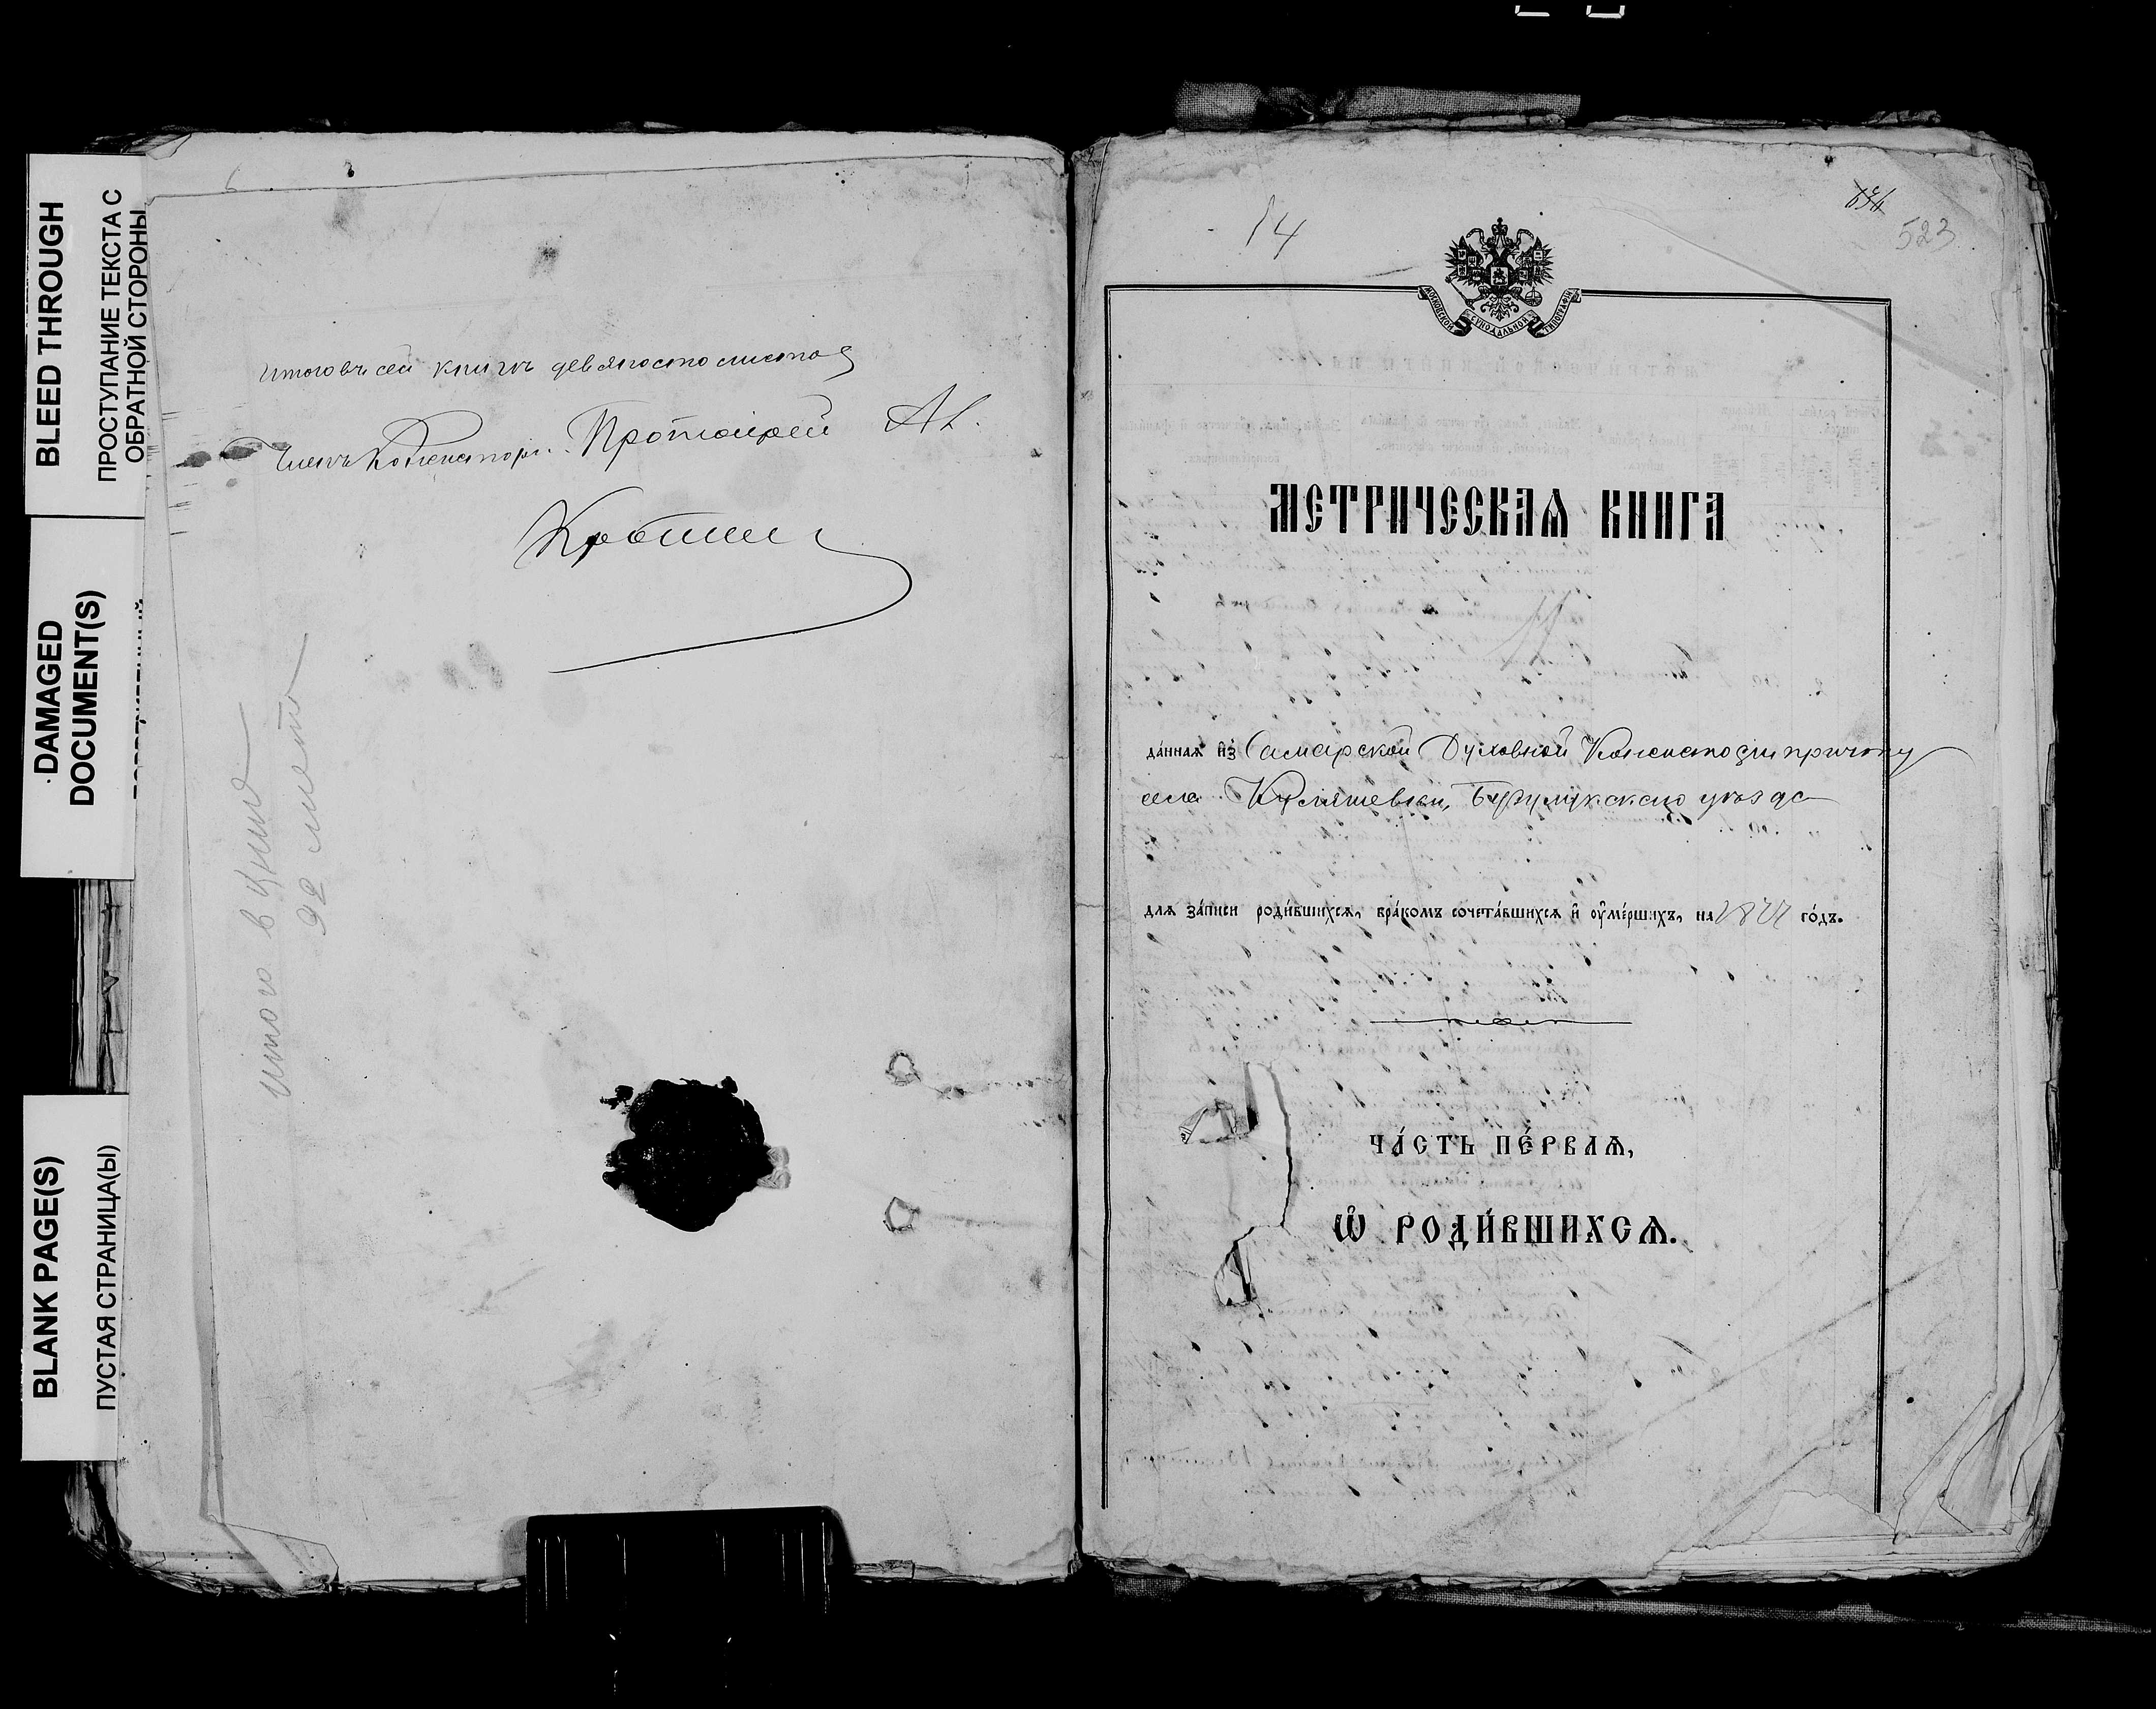 BLEED THROUGH
ПРОСТУПАНИЕ ТЕКСТА С
ОБРАТНОЙ СТОРОНЫ
DAMAGED
DOCUMENT(S)
BLANK PAGE(S)
ПУСТАЯ СТРАНИЦА(Ы)
Итого въ сей книгѣ девяносто листовъ
Членъ Консисторіи Протоіерей Ал.
итого в книге
92 листа
14
523
МОСКОВСКОЙ СѴНОДАЛЬНОЙ ТИПОГРАФІИ
МЕТРИЧЕСКАѦ КНИГА
да́ннаѧ и҆з̾ Самарской Духовной Консисторіи причту
села Бузулукскаго уѣзда
длѧ за́писи роди́вшихсѧ, бра́комъ сочета́вшихсѧ и҆ ѹ҆ме́ршихъ, на 1877 го́дъ.
ЧА́СТЬ ПЕ́РВАѦ,
Ѡ҆ РОДИ́ВШИХСѦ.